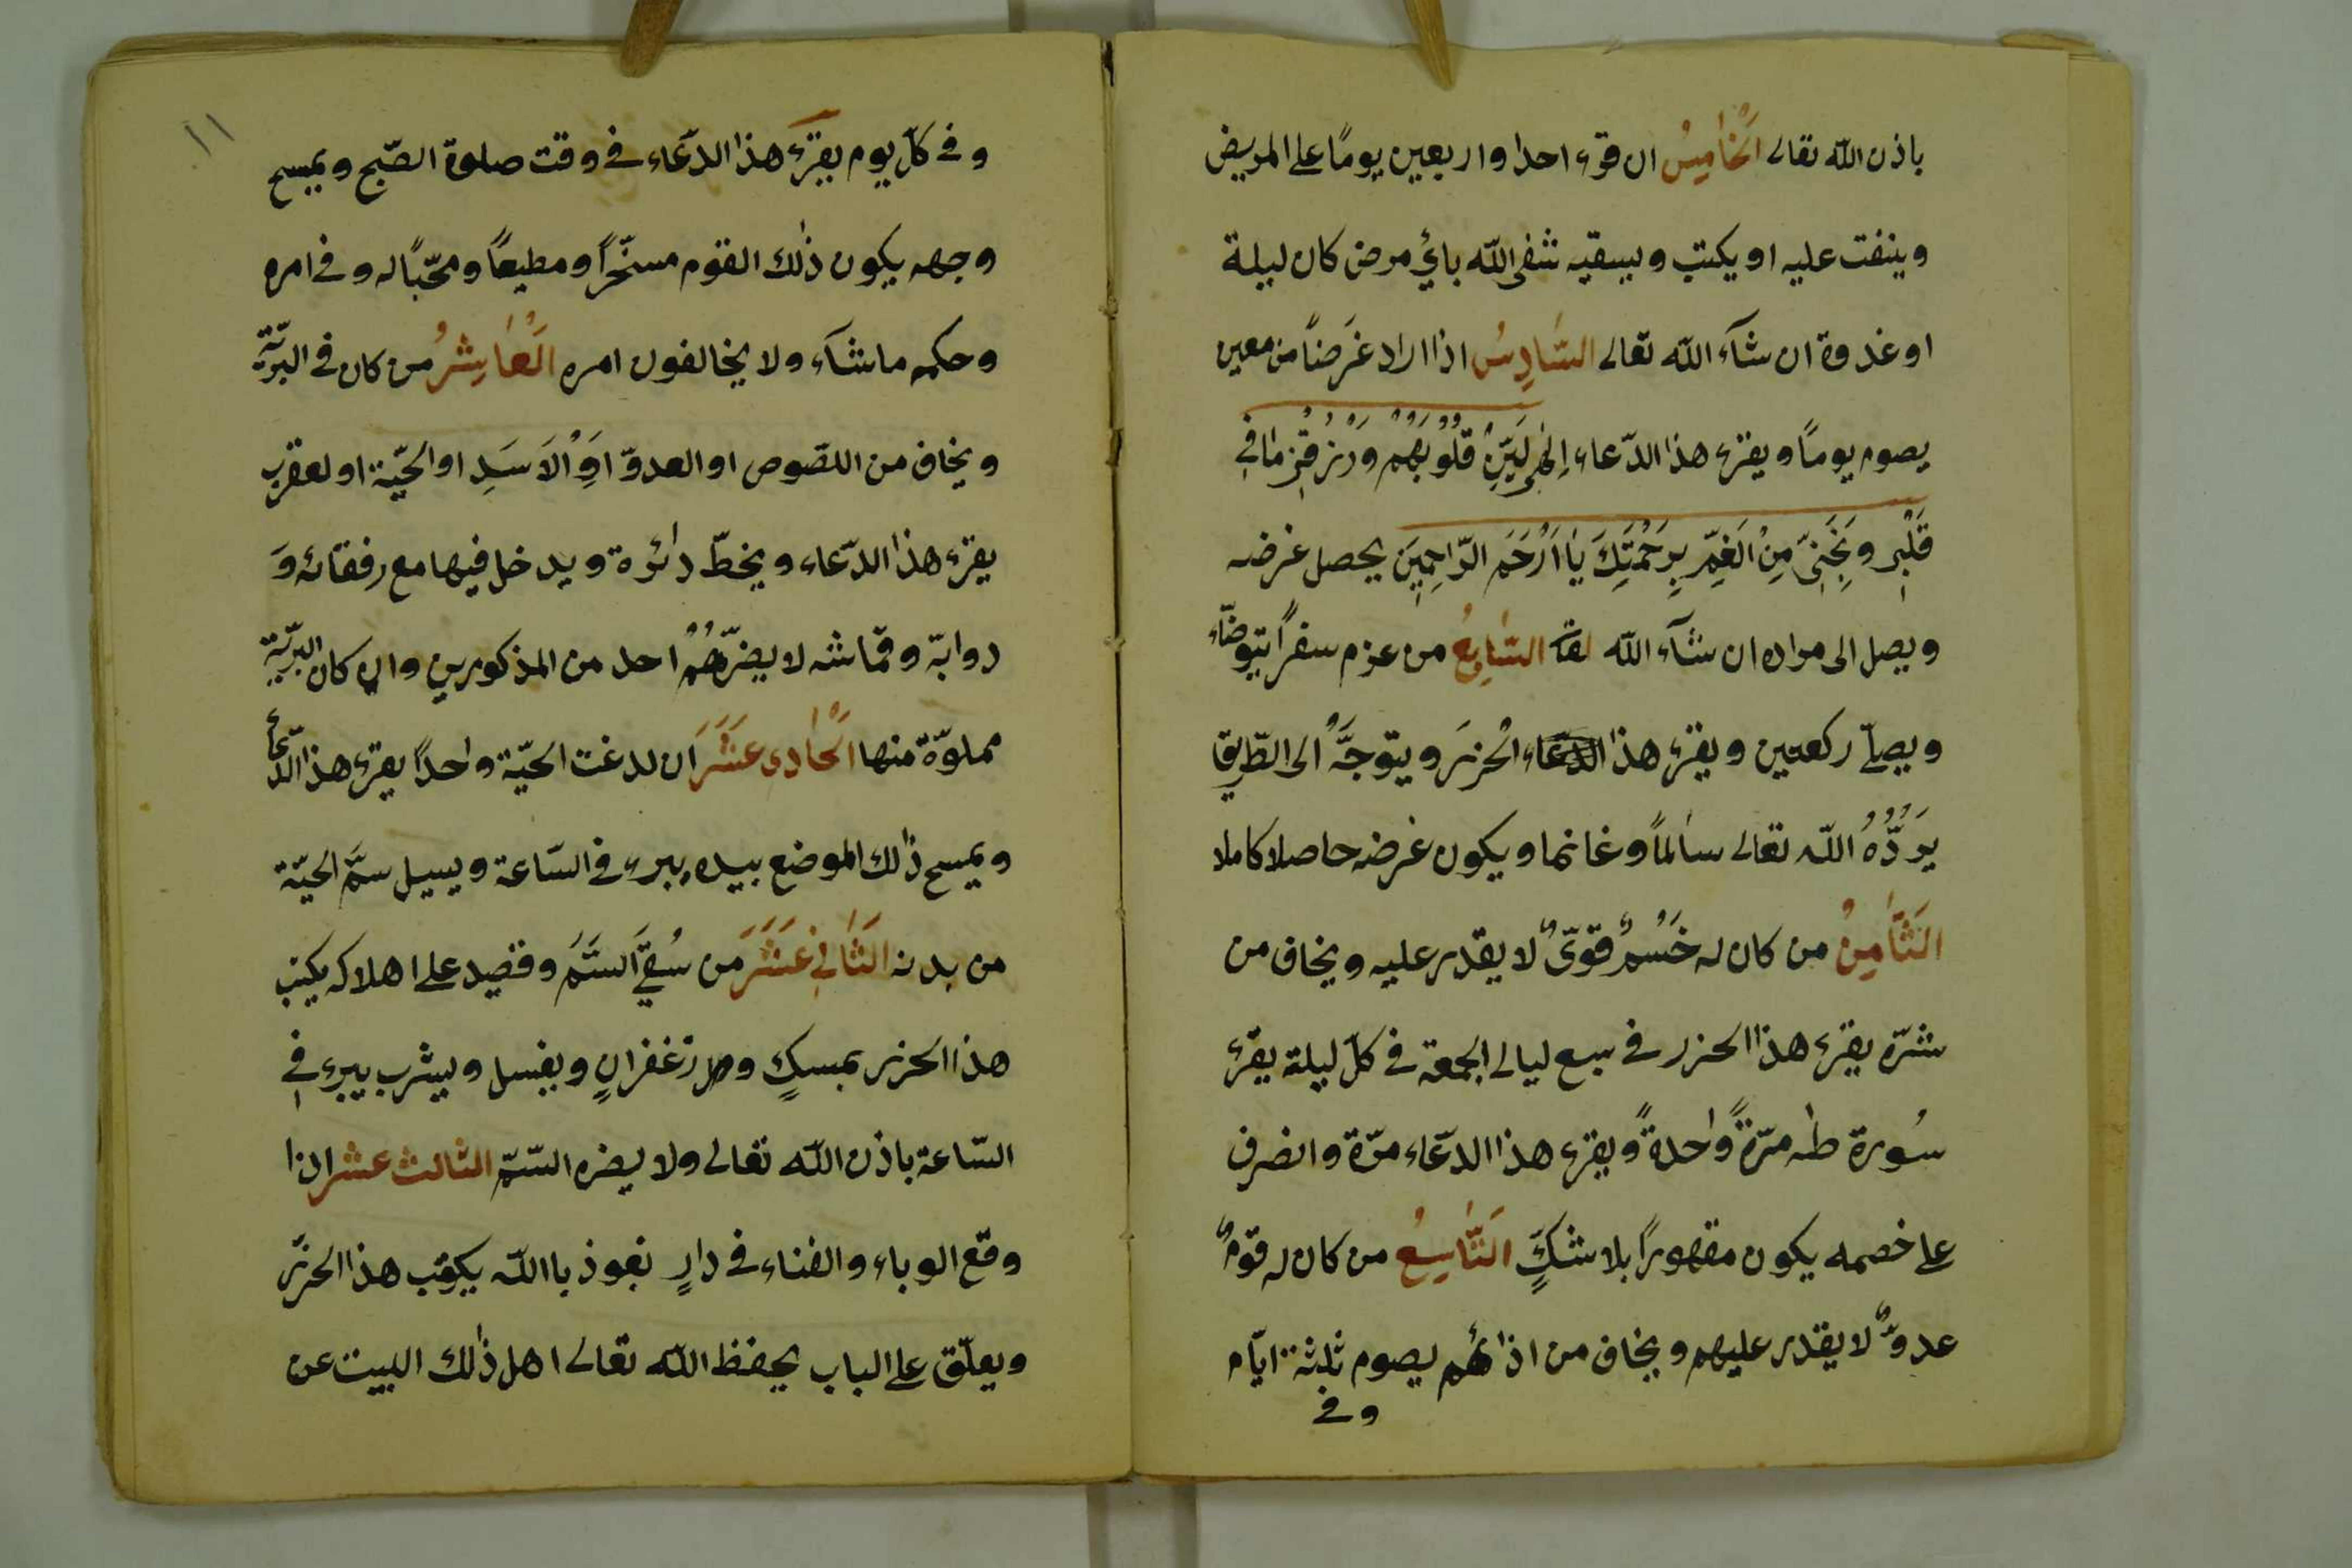 باذن الله تعالى اَلْخَامِسُ ان قرء احدا واربعين يومًا على المريض
وينفت عليه او يكتب ويسقيه شفى الله بائ مرض كان ليلة
او غدوة ان شآء الله تعالى السَّادِسُ اذا اراد غَرَضًا من معين
يصوم يومًا ويقرء هذا الدّعاء اِلٰهِى لَيِّنْ قُلُوْبَهُمْ وَرْزُقْنِى مَا فِى
قَلْبِى وَنَجِّنِىّ مِنْ الْغَمِّ بِرَحْمَتِكَ يَا اَرْحَمَ الرّاحِمِينَ يحصل غرضه
ويصل الى مراده ان شآء الله تعا السَّابِعُ من عزم سفرًا يتوضّاء
ويصلّى ركعتين ويقرء هذا الدعاء الْحزرَ ويتوجَّهُ الى الطّريق
يَردُّهُ الله تعالى سالماً وغانما ويكون غرضه حاصلا كاملا
اَلثَّامِنُ من كان له خَسْمٌ قوىٌّ لا يقدر عليه ويخاف من
شرّه يقرء هذا الحزر فى سبع ليالى الجمعة فى كلّ ليلة يقرء
سُورة طٰه مرّةً واحدةً ويقرء هذا الدّعاء مرّة وانصرف
على خصمه يكون مقهورًا بلا شكٍّ اَلتَّاسِعُ من كان له قومٌ
عدوٌّ لا يقدر عليهم ويخاف من اذائهم يصوم ثلثة ايّام
وفى
١١
وفى كلّ يوم يقرء هذا الدّعاء فى وقت صلوة الصّبح ويمسح
وجهه يكون ذٰلك القوم مسخّرًا ومطيعًا ومحبًّا له وفى امره
وحكمه ما شآء ولا يخالفون امره اَلْعَاشِرُ من كان فى البرّيّة
ويخاف من اللّصوص او العدوّ اوِ الْاَسَدِ او الحيّة او لعقرب
يقرء هذا الدّعاء ويخطّ دائرة ويدخل فيها مع رفقائه وَ
دوابّه وقماشه لا يضرّهُمُ احد من المذكورين وان كان البرّيّة
مملوّة منها اَلْحَادى عَشَرَ ان لدغت الحيّة واحدًا يقرء هذا الدّعاء
ويمسح ذٰلك الموضع بيده يبرء فى السّاعة ويسيل سمَّ الحيّة
من بدنه اَلثَّانِى عَشَرَ من سُقِىَ السَّمَّ وقصيد على اهلاكه يكتب
هذا الحزر بمسكٍ وزغفرانٍ ويغسل ويشرب يبرء فى
السّاعة باذن الله تعالى ولا يضره السّمّ الثالث عشر اذا
وقع الوباء والفناء فى دارٍ نعوذ باالله يكتب هذا الحزر
ويعلّق على الباب يحفظ الله تعالى اهل ذٰلك البيت عن